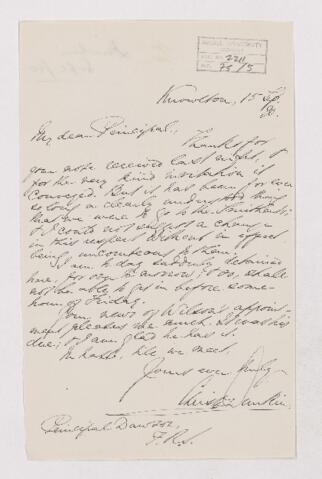 McGILL UNIVERSITY
ACC. NO. 2211
REF. 75/5
Knowlton, 15 Sep.
90.
My dear Principal,
Thanks for
your note received last night, &
for the very kind invitation it
conveyed. But it has been for ever
so long a clearly understood thing
that we were to go to the
& I could not suggest a change
in this respect without in effect
being uncourteous to them.
I am to-day suddenly detained
here, for or tomorrow & so, shall
not be able to get in before some
hour of Friday.
Your news of appoint-
ment pleases me much. It was his
due; & I am glad he has it.
In haste, till we meet,
Yours ever truly
Principal Dawson
F.R.S.